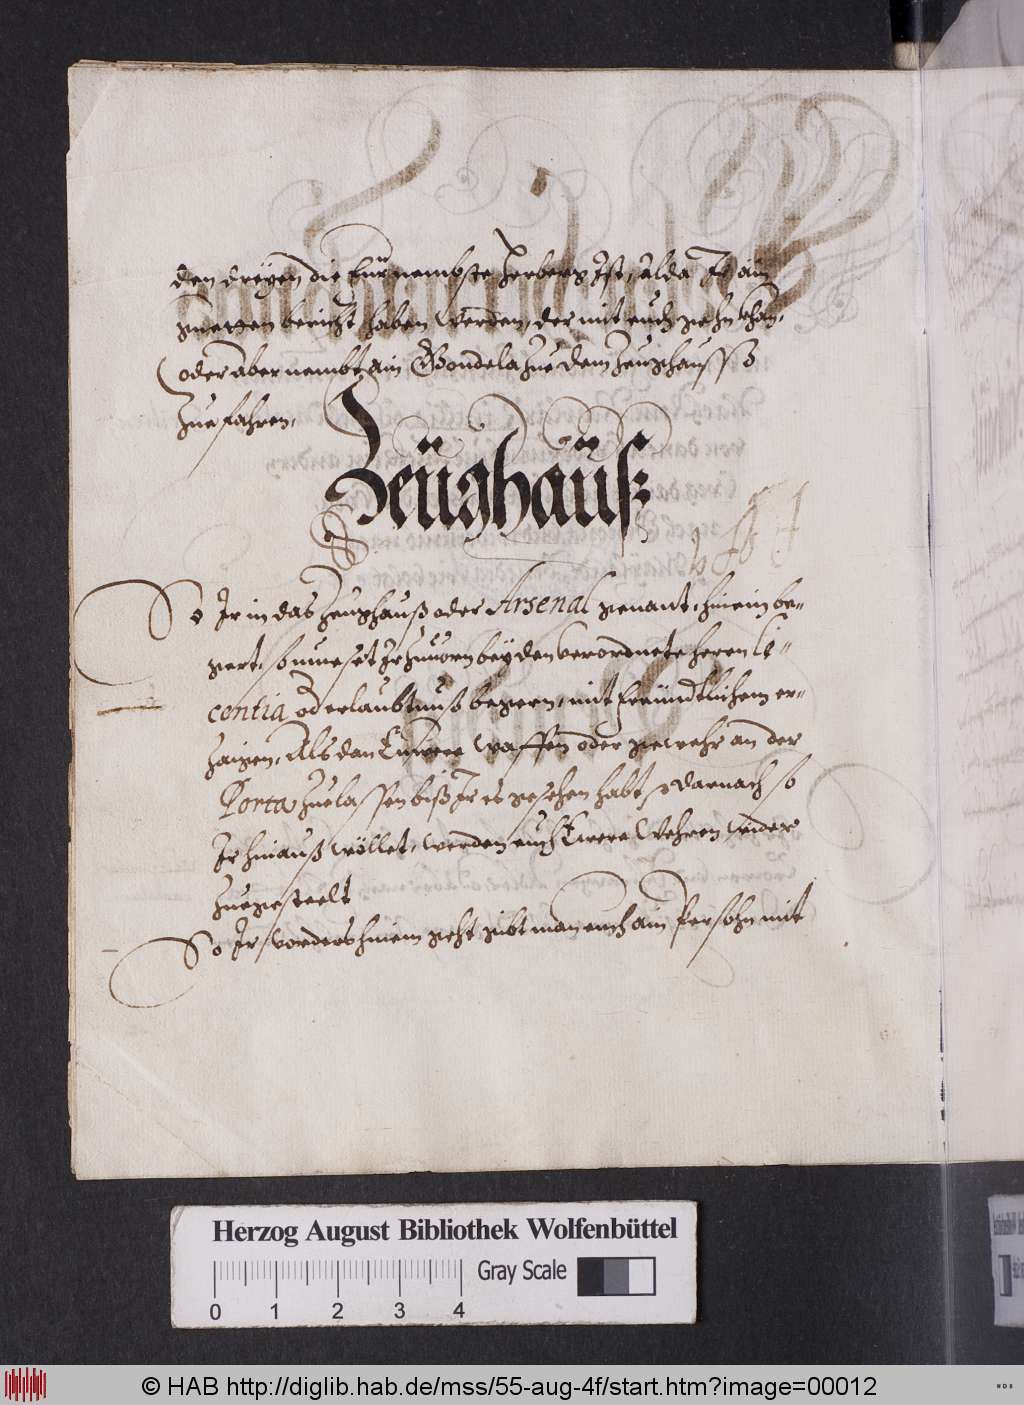 den dreyen die fürnembste Herberg Ist, alda Ir ain
guetten bericht haben werden, der mit euch gehn khan,
oder aber nembt ain Gondela Zue dem Zeughausse
Zue fahren,
Zeüghauß
So Ir in das Zeughauß oder Arsenal genant, hinein be-
gert, so mueset Ir zuuorn bey den verordnete heren li-
centia od erlaubtnuß begern, mit freündtlichem er-
zaigen, Als dan Euwere Waffen oder gewehr an der
Porta Zuelassen biß Ir es gesehen habt, darnach so
Ir hinauß wöllet, werden euch Ewere Wehren wider
Zuegesteelt
So Ir vorders hinein geht gibt man euch ain Persohn mit
Herzog August Bibliothek Wolfenbüttel
Gray Scale
0 1 2 3 4
© HAB http://diglib.hab.de/mss/55-aug-4f/start.htm?image=00012